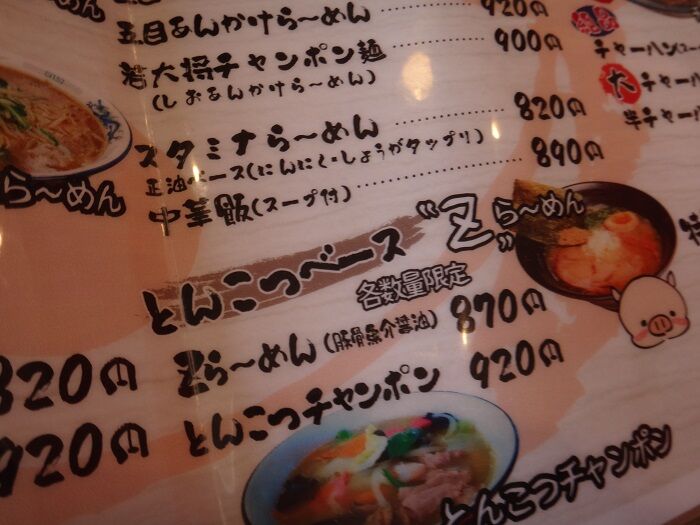 めん
五目あんかけら〜めん 920円
若大将チャンポン麺 900円
(しおあんかけら〜めん)
スタミナら〜めん 820円
正油ベース(にんにく・しょうがタップリ)
中華飯(スープ付) 890円
ら〜めん
チャーハン
大 チャー
半チャー
とんこつベース
"Z"ら〜めん
各数量限定
820円
Zら〜めん(豚骨魚介醤油) 870円
920円
とんこつチャンポン 920円
とんこつチャンポン